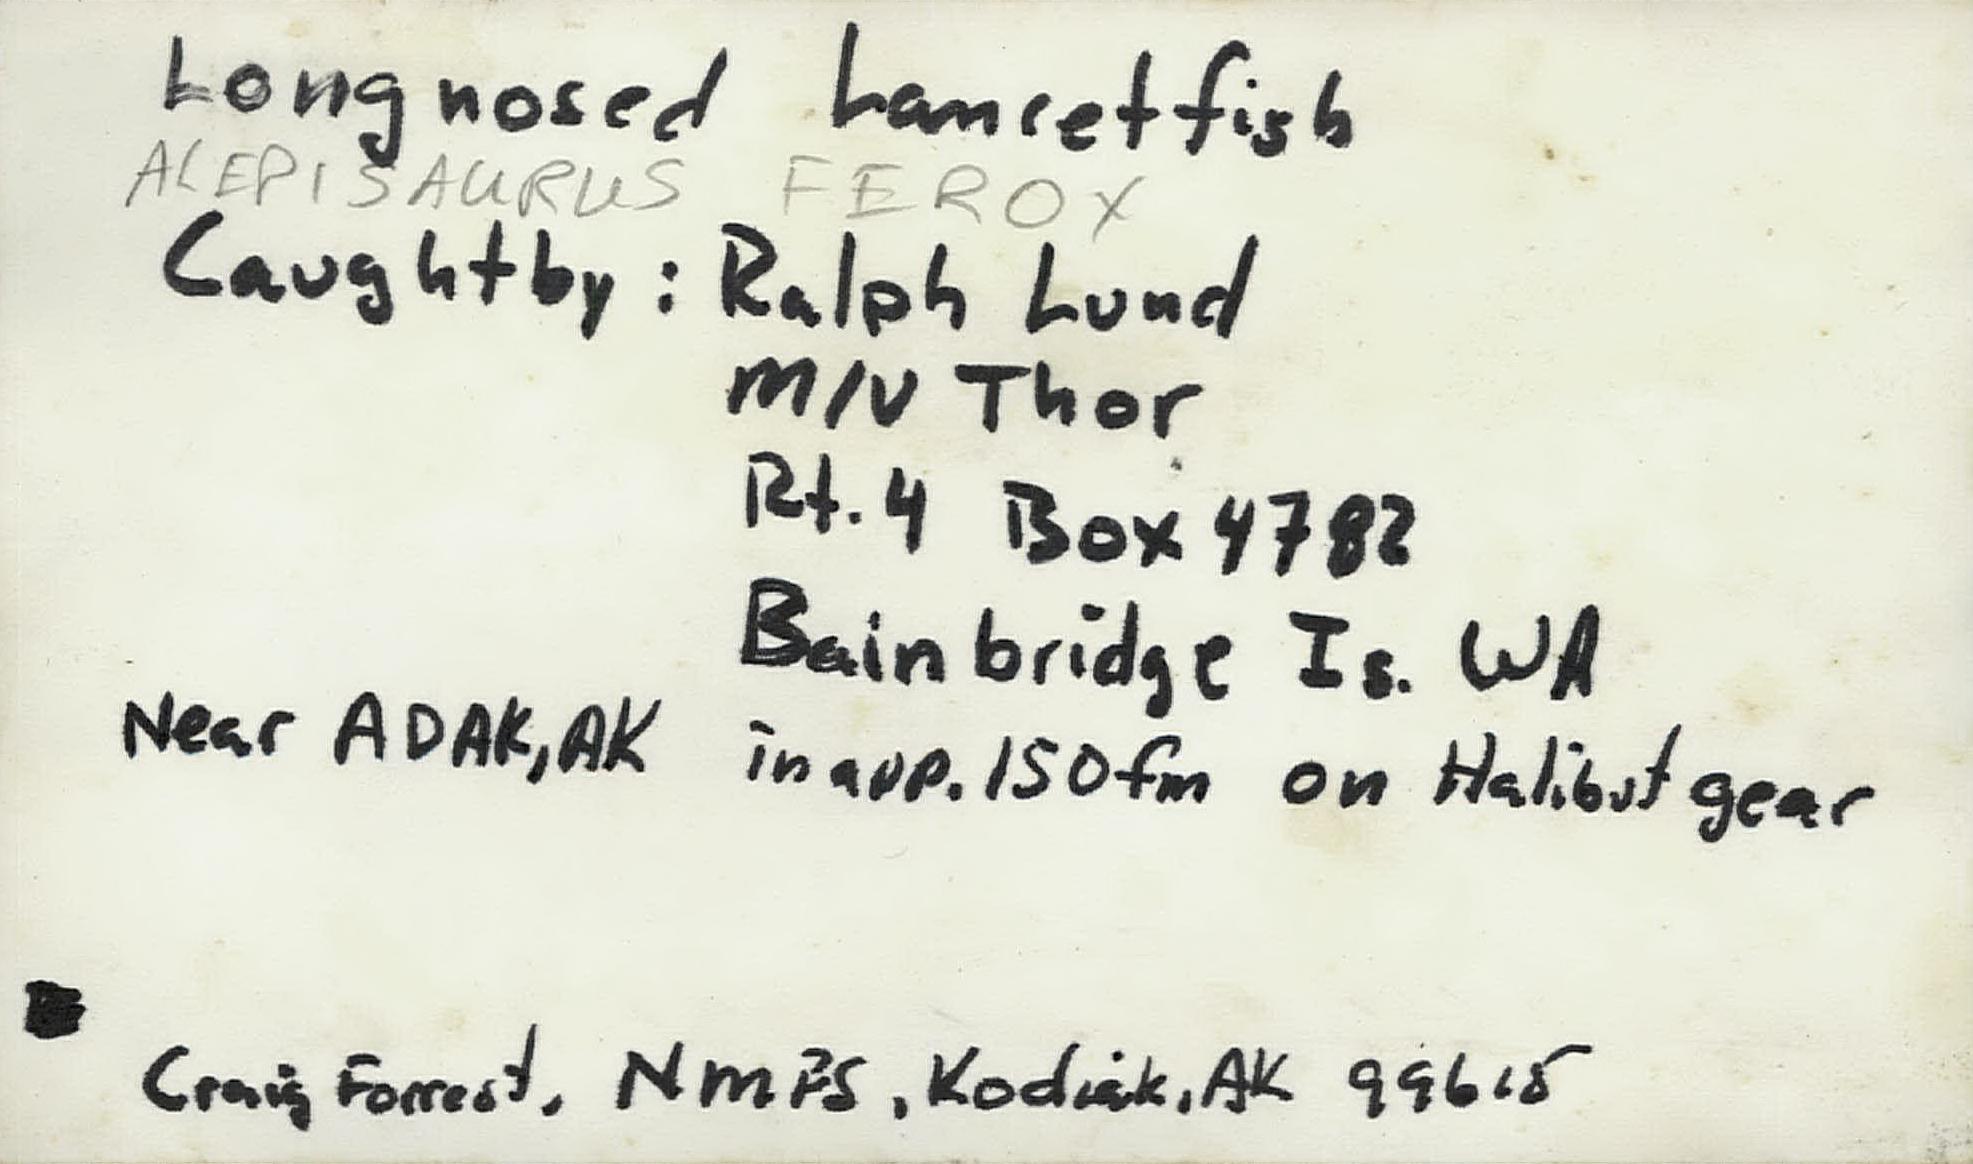 Longnosed Lancetfish
ALEPISAURUS FEROX
Caught by: Ralph Lund
M/V Thor
Rt. 4 Box 4782
Bainbridge Is. WA
Near ADAK, AK in app. 150 fm on Halibut gear
Craig Forrest, NMFS, Kodiak, AK 99615